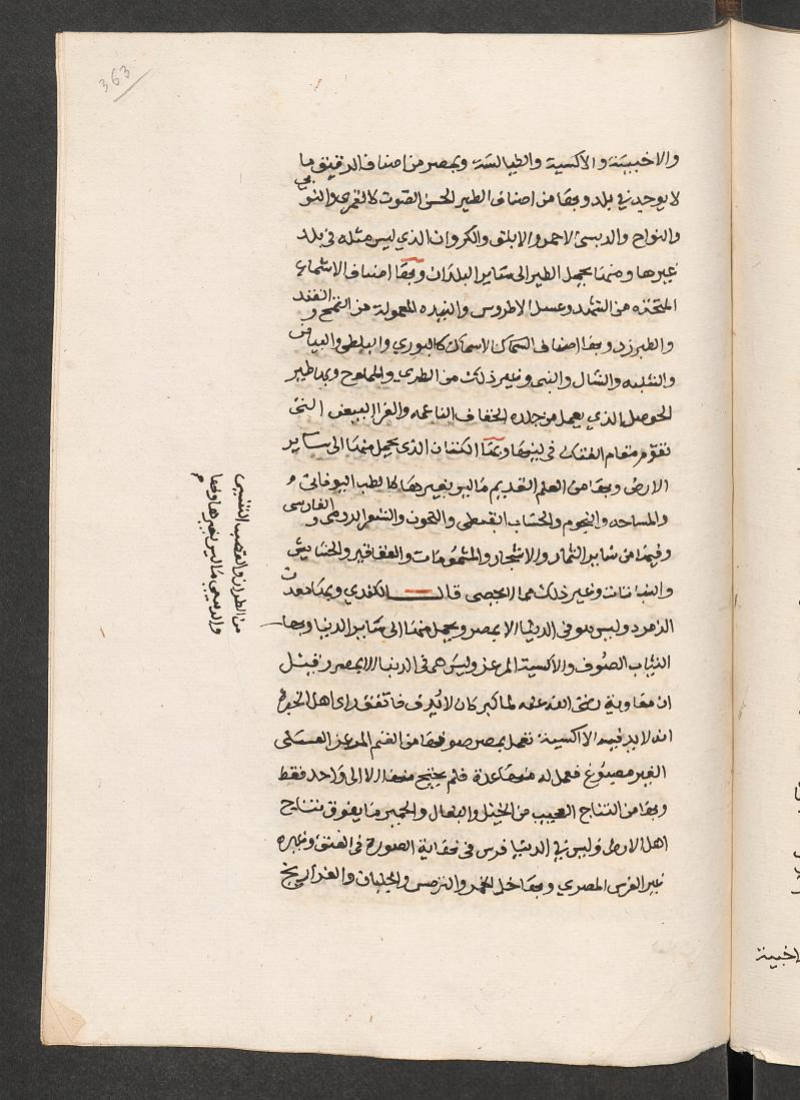 363
والاخبيسة والاكسية والطيالسة وبمصر من اصناف الدقيق ما
لا يوجد في بلد وبها من اصناف الطير الحسن الصوت كالقمري والنوبي
والنواح والدبسى الاحمر والابلق والكروان الذي ليس مثله في بلد
غيرها ومنها يحمل الطير الى ساير البلدان وبها اصناف الاشماع
المتخذه من الشهد وعسل الاطروس والنيده المعمولة من القمح والقند
والطبرزد وبها اصناف السماك الاسماك كالبوري والبلطى والبياض
والشال والبنى وغير ذلك من الطري والمملوح وبها طير
الحوصل الذي يعمل من جلده الخفاف الناعمه والفرا البيض التى
تقوم مقام الفنك في لينها وبها الكتان الذي يحمل منها الى ساير
الارض وبها من العلم القديم ما ليس بغيرها كالطب اليوناني و
والمساحه والنجوم والحساب القبطى واللحون والشعر الرومى والفارسى
وفيها من ساير الثمار والاشجار والمشمومات والعقاقير والحشايش
والنباتات وغير ذلك مما لا يحصى قال الكندي وبها معدن
الزمرد وليس هو في الدنيا الا بمصر ويحمل منها الى ساير الدنيا وبها
الثياب الصوف والاكسية المرعز وليس هى فى الدنيا الا بمصر وقيل
ان معاوية رضى الله عنه لما كبر كان لا يدفى فاتفق راى اهل الخبرة
انه لا يدفيه الا اكسية تعمل بمصر صوفها من الغنم المرعز العسلى
الغير مصبوغ فعمل له منها عدة فلم يحتج منها الا الى واحد فقط
وبها من النتاج العجيب من الخيل والبغال والحمير ما يفوق نتاج
اهل الارض وليس في الدنيا فرس في نهاية الصورة فى العنق وغيره
غير الفرس المصري وبها خل الخمر والترمس والجلبان والفراريخ
من الطراز والقصب التنيسى
والدبيقى ما ليس بغيرها وبها
م
اخبية